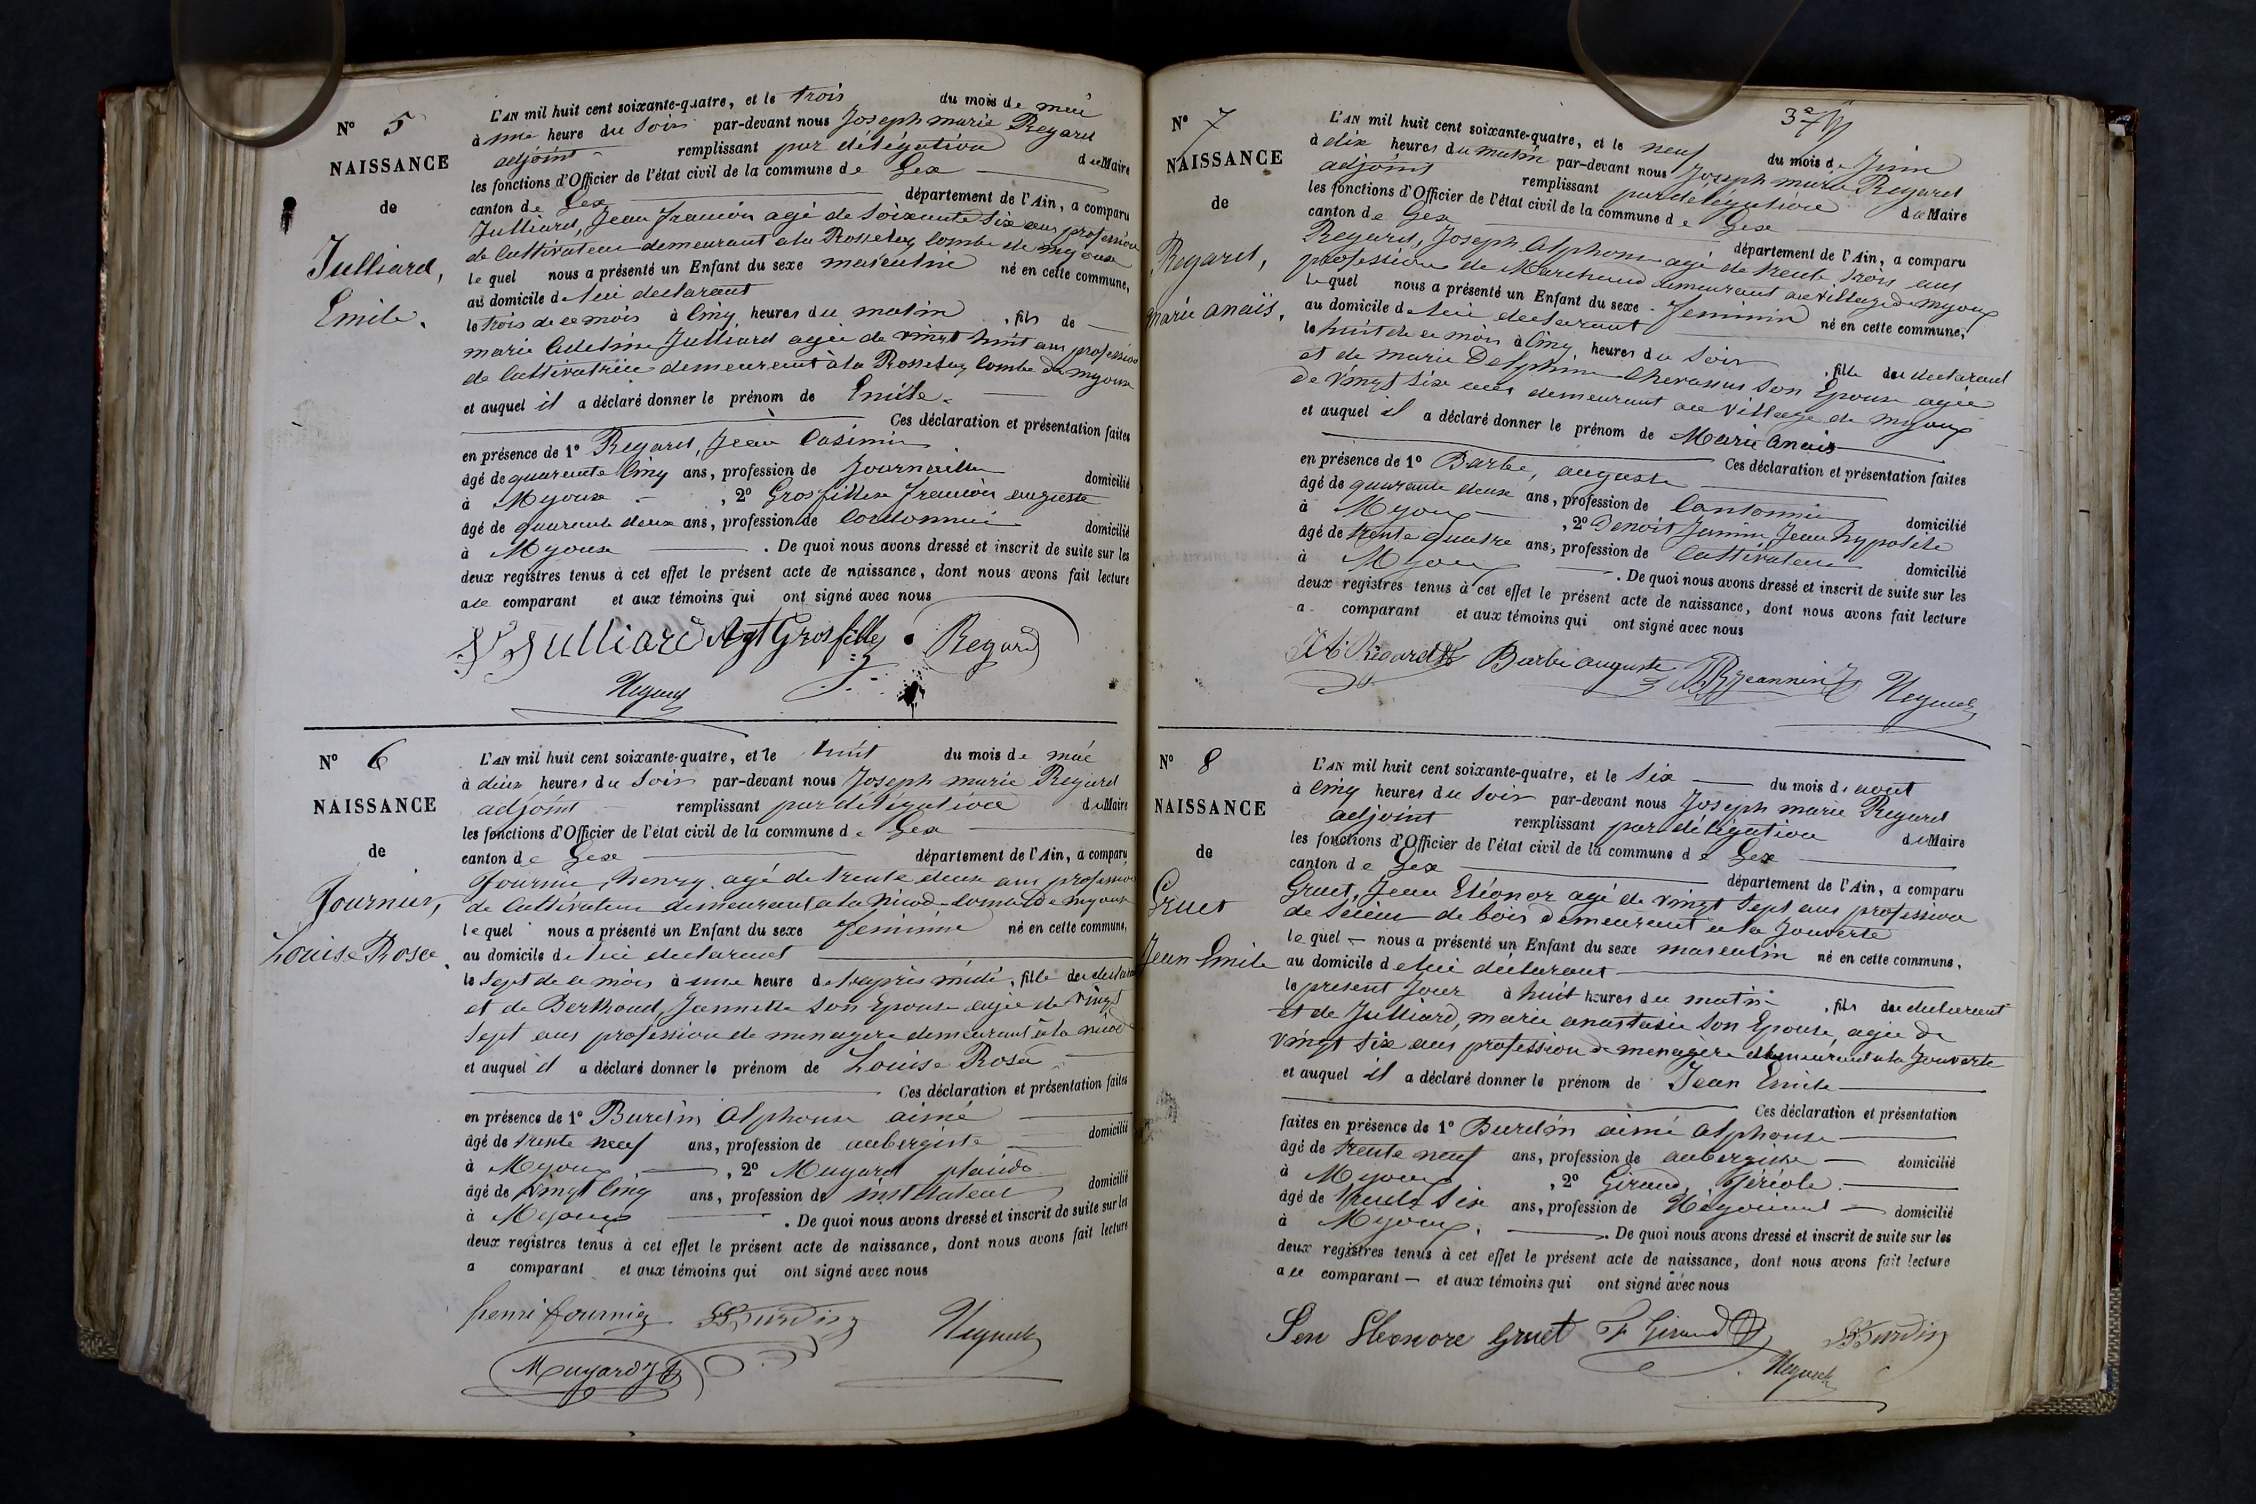 N° 5
NAISSANCE
de
Julliard,
Emile.
L'AN mil huit cent soixante-quatre, et le trois du mois de mai
à une heure du Soir par-devant nous Joseph marie Regard
adjoint remplissant par délégation du Maire
les fonctions d'Officier de l'état civil de la commune de Gex
canton de Gex département de l'Ain, a comparu
Julliard, Jean François agé de Soixante Six ans profession
de Cultivateur demeurant a la Rosselay Combe de myoux
le quel nous a présenté un Enfant du sexe masculin né en cette commune,
au domicile de lui declarant
le trois de ce mois à Cinq heures du matin, fils de
marie Adeline Julliard agée de vingt huit ans profession
de Cultivatrice demeurent à la Rosselay Combe de myoux
et auquel il a déclaré donner le prénom de Emile.
Ces déclaration et présentation faites
en présence de 1° Regard, Jean Casimir
âgé de quarente Cinq ans, profession de Journailler domicilié
à Myoux, 2° Grosfillex François auguste
âgé de quarente deux ans, profession de Cordonnier domicilié
à Myoux. De quoi nous avons dressé et inscrit de suite sur les
deux registres tenus à cet effet le présent acte de naissance, dont nous avons fait lecture
a le comparant et aux témoins qui ont signé avec nous
Julliard Agt Grosfillex Regard
N° 6
NAISSANCE
de
Fournier,
Louise Rose
L'AN mil huit cent soixante-quatre, et le huit du mois de mai
à deux heures du Soir par-devant nous Joseph marie Regard
adjoint remplissant par délégation du Maire
les fonctions d'Officier de l'état civil de la commune de Gex
canton de Gex département de l'Ain, a comparu
Fournier, henry agé de trente deux ans profession
de Cultivateur demeurant a la Nicode Combe de myoux
le quel nous a présenté un Enfant du sexe Feminin né en cette commune,
au domicile de lui declarant
le Sept de ce mois à une heure de l'après midi, fille du declarant
et de Berthoud, Jannette Son Epouse agée de vingt
Sept ans profession de menagere demeurant à la Nicode
et auquel il a déclaré donner le prénom de Louise Rose
Ces déclaration et présentation faites
en présence de 1° Burdin Alphonse aimé
âgé de trente neuf ans, profession de aubergiste domicilié
à Myoux, 2° Mugard
âgé de vingt Cinq ans, profession de instituteur domicilié
à Myoux. De quoi nous avons dressé et inscrit de suite sur les
deux registres tenus à cet effet le présent acte de naissance, dont nous avons fait lecture
a comparant et aux témoins qui ont signé avec nous
henri fournier Burdin
Mugard
N° 7
NAISSANCE
de
Regard,
marie anaïs.
L'AN mil huit cent soixante-quatre, et le neuf du mois de Juin
à dix heures du matin par-devant nous Joseph marie Regard
adjoint remplissant par délégation du Maire
les fonctions d'Officier de l'état civil de la commune de Gex
canton de Gex département de l'Ain, a comparu
Regard, Joseph Alphonse agé de trente trois ans
profession de Marchand demeurant au village de myoux
le quel nous a présenté un Enfant du sexe Feminin né en cette commune,
au domicile de lui declarant
le huit de ce mois à Cinq heures du Soir, fille du declarant
et de marie Delphine Chevassus Son Epouse agée
de vingt Six ans demeurant au village de myoux
et auquel il a déclaré donner le prénom de Marie Anais
Ces déclaration et présentation faites
en présence de 1° Barbe, auguste
âgé de quarante deux ans, profession de Cantonnier domicilié
à Myoux, 2° Benoit Janin Jean hypolite
âgé de trente quatre ans, profession de Cultivateur domicilié
à Myoux. De quoi nous avons dressé et inscrit de suite sur les
deux registres tenus à cet effet le présent acte de naissance, dont nous avons fait lecture
a comparant et aux témoins qui ont signé avec nous
Regard Barbe auguste Jeannin
N° 8
NAISSANCE
de
Gruet
Jean Emile
L'AN mil huit cent soixante-quatre, et le Six du mois d'aout
à Cinq heures du Soir par-devant nous Joseph marie Regard
adjoint remplissant par délégation du Maire
les fonctions d'Officier de l'état civil de la commune de Gex
canton de Gex département de l'Ain, a comparu
Gruet, Jean Eléonor agé de vingt Sept ans profession
de Scieur de bois demeurent a la Jouverte
le quel nous a présenté un Enfant du sexe masculin né en cette commune,
au domicile de lui déclarant
le present Jour à huit heures du matin, fils du declarent
et de Julliard, marie anastasie Son Epouse, agée de
vingt Six ans profession de menagère demeurant a la Jouverte
et auquel il a déclaré donner le prénom de Jean Emile
Ces déclaration et présentation
faites en présence de 1° Burdin aimé Alphonse
âgé de trente neuf ans, profession de aubergiste domicilié
à Myoux, 2° Giroud
âgé de trente Six ans, profession de Négociant domicilié
à Myoux. De quoi nous avons dressé et inscrit de suite sur les
deux registres tenus à cet effet le présent acte de naissance, dont nous avons fait lecture
a le comparant et aux témoins qui ont signé avec nous
Jen Eleonore Gruet F Giroud Burdin